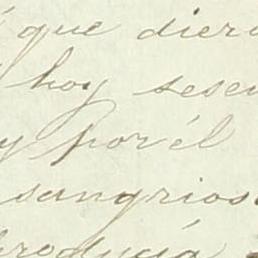 que diero
hoy sesen
y por él
sangrios
producía